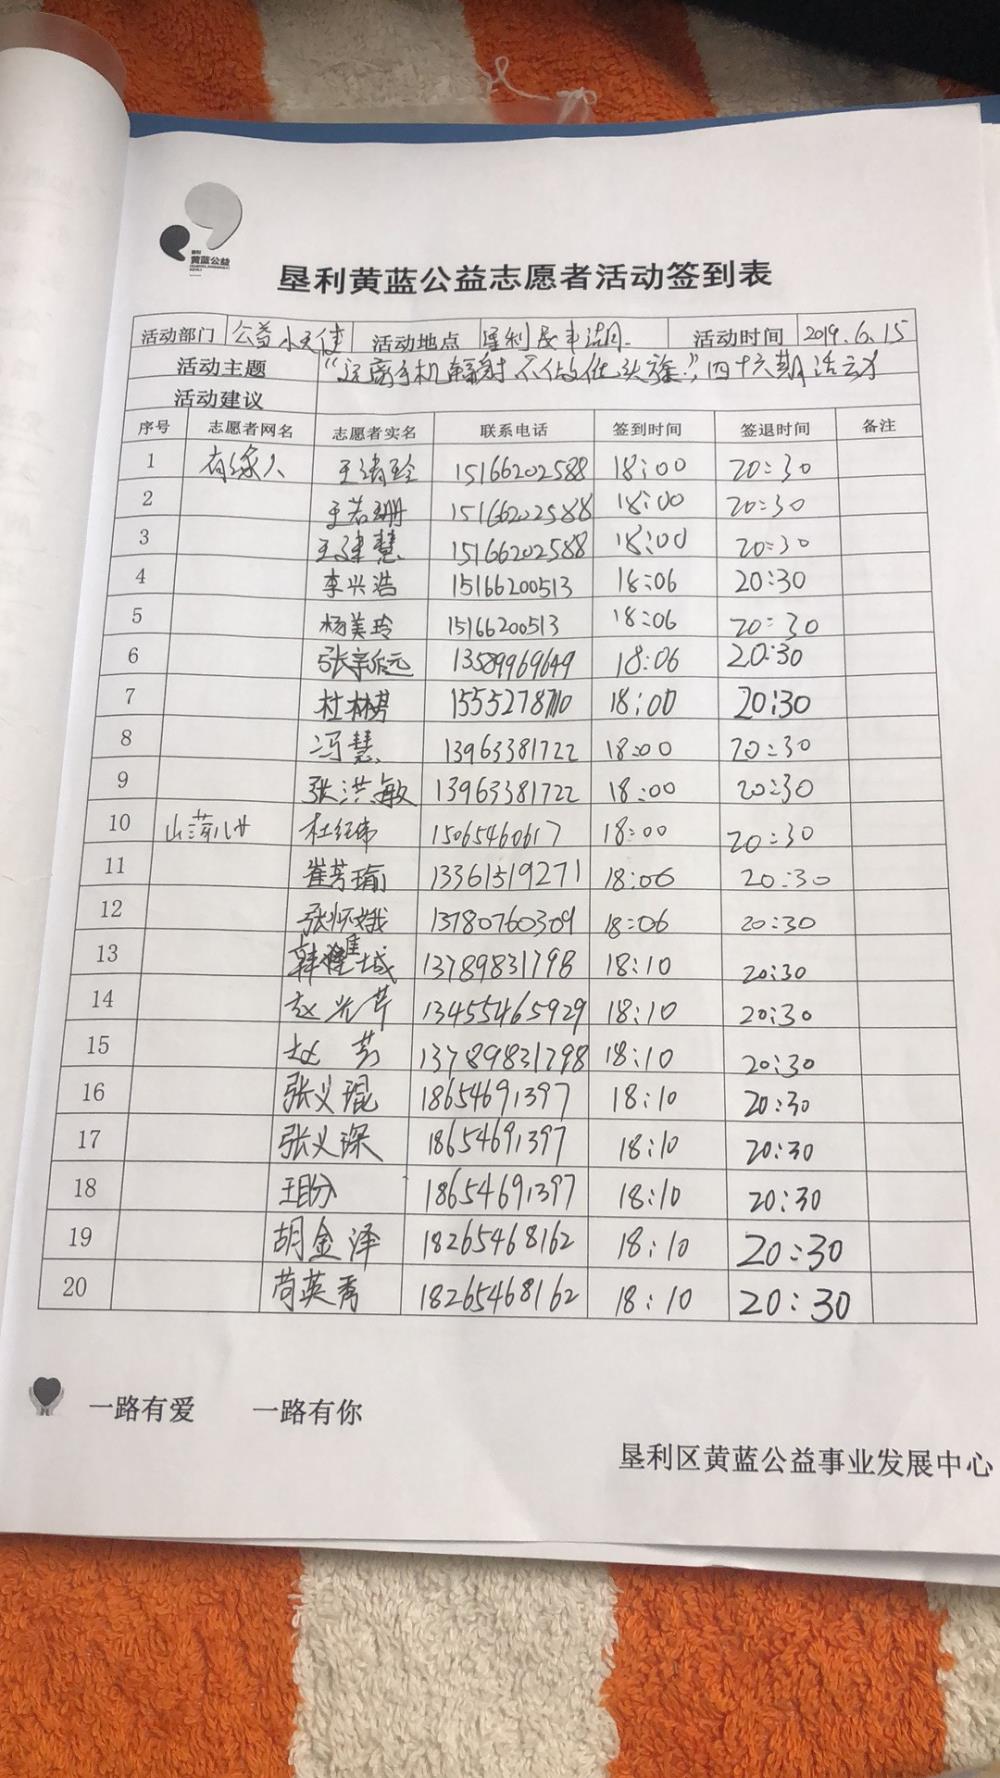 黄蓝公益
垦利黄蓝公益志愿者活动签到表
活动部门 公益小天使 活动地点 垦利 活动时间 2019.6.15
活动主题 “远离手机辐射 不做低头族”四十六期活动
活动建议
序号 志愿者网名 志愿者实名 联系电话 签到时间 签退时间 备注
1 有缘人 15166202588 18:00 20:30
2 王若珊 15166202588 18:00 20:30
3 王建慧 15166202588 18:00 20:30
4 李兴浩 15166200513 18:06 20:30
5 杨美玲 15166200513 18:06 20:30
6 13589969649 18:06 20:30
7 18:00 20:30
8 冯慧 13963381722 18:00 20:30
9 张洪敏 13963381722 18:00 20:30
10 15065460617 18:00 20:30
11 崔芳瑜 13361519271 18:06 20:30
12 张怀娥 13780760309 18:06 20:30
13 13789831798 18:10 20:30
14 赵光芹 13455465929 18:10 20:30
15 赵芳 13789831798 18:10 20:30
16 张义琨 18654691397 18:10 20:30
17 张义琛 18654691397 18:10 20:30
18 18654691397 18:10 20:30
19 胡金泽 18265468162 18:10 20:30
20 苟英秀 18265468162 18:10 20:30
一路有爱 一路有你
垦利区黄蓝公益事业发展中心